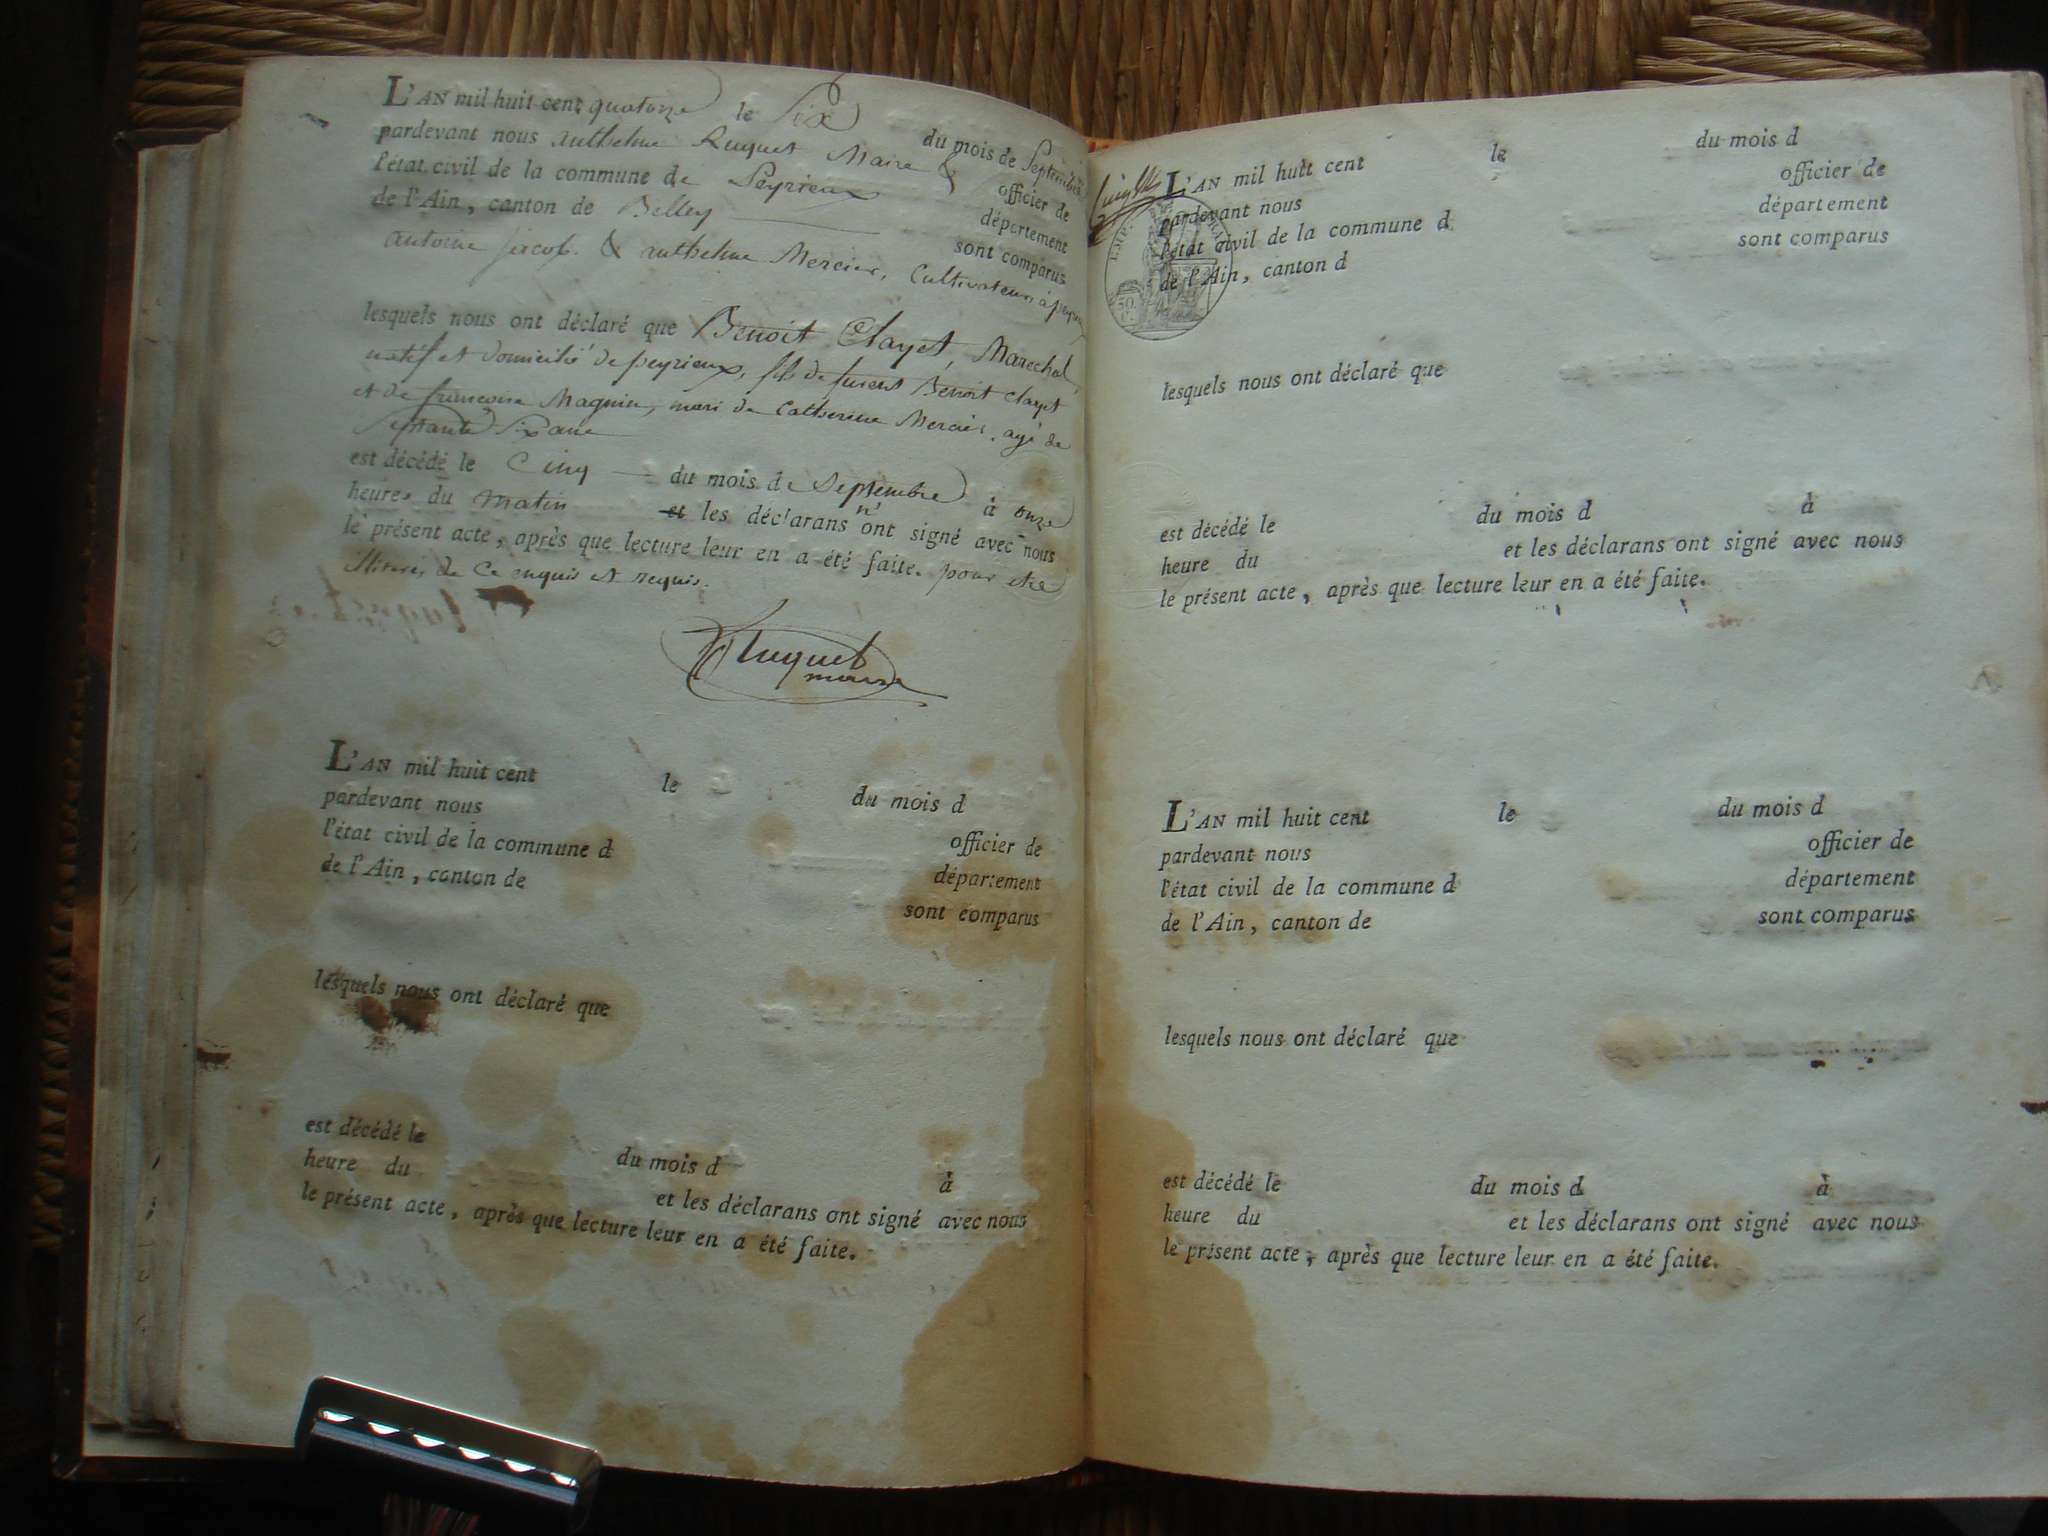 L'AN mil huit cent quatorze le Six du mois de Septembre
pardevant nous anthelme Ruquet Maire & officier de
l'état civil de la commune de Peyrieux département
de l'Ain, canton de Belley sont comparus
antoine jacob & anthelme Mercier, Cultivateurs à
lesquels nous ont déclaré que Benoit Clayet, Marechal,
natif et domicilié de peyrieux, fils de Benoit Clayet
et de francoise Magnin, mari de Catherine Mercier, agé de
Septante Six ans
est décédé le Cinq du mois de Septembre à onze
heures du matin et les déclarans n' ont signé avec nous
le présent acte, après que lecture leur en a été faite. pour etre
illiterés de ce enquis et requis.
Ruquet
maire
L'AN mil huit cent le du mois d
pardevant nous officier de
l'état civil de la commune d département
de l'Ain, canton de sont comparus
lesquels nous ont déclaré que
est décédé le du mois d à
heure du et les déclarans ont signé avec nous
le présent acte, après que lecture leur en a été faite.
L'AN mil huit cent le du mois d
pardevant nous officier de
l'état civil de la commune d département
de l'Ain, canton d sont comparus
lesquels nous ont déclaré que
est décédé le du mois d à
heure du et les déclarans ont signé avec nous
le présent acte, après que lecture leur en a été faite.
L'AN mil huit cent le du mois d
pardevant nous officier de
l'état civil de la commune d département
de l'Ain, canton de sont comparus
lesquels nous ont déclaré que
est décédé le du mois d à
heure du et les déclarans ont signé avec nous
le présent acte, après que lecture leur en a été faite.